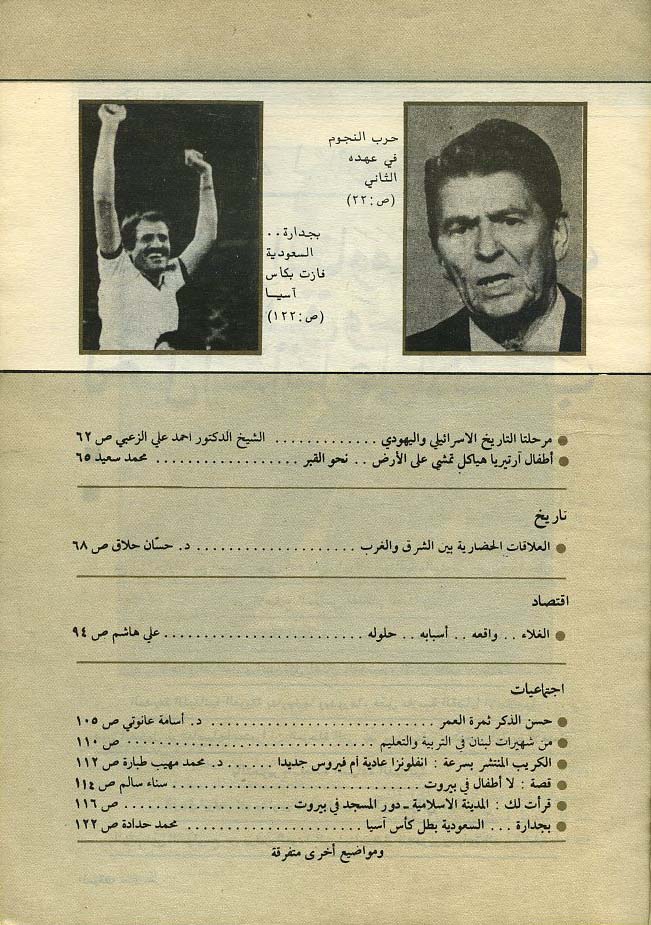 حرب النجوم
في عهده
الثاني
(ص : ٢٢)
بجدارة . .
السعودية
فازت بكاس
آسيـا
(ص : ١٢٢)
مرحلتا التاريخ الاسرائيلي واليهودي . . . . . . . . . . . . الشيخ الدكتور احمد علي الزعبي ص ٦٢
أطفال أرتيريا هياكل تمشي على الأرض . . نحو القبر . . . . . . . . . . . . . . . . . . محمد سعيد ٦٥
تاريخ
العلاقات الحضارية بين الشرق والغرب . . . . . . . . . . . . . . . . . . . . د. حسّان حلاق ص ٦٨
اقتصاد
الغلاء . . واقعه . . أسبابه . . حلوله . . . . . . . . . . . . . . . . . . . . . . . . علي هاشم ص ٩٤
اجتماعيات
حسن الذكر ثمرة العمر . . . . . . . . . . . . . . . . . . . . . . . . . . د. أسامة عانوتي ص ١٠٥
من شهيرات لبنان في التربية والتعليم . . . . . . . . . . . . . . . . . . . . . . . . . . . . ص ١١٠
الكريب المنتشر بسرعة : انفلونزا عادية أم فيروس جديد! . . . . . د. محمد مهيب طبارة ص ١١٢
قصة : لا أطفال في بيروت . . . . . . . . . . . . . . . . . . . . . . . . . . . . سناء سالم ص ١١٤
قرأت لك : المدينة الاسلامية ـ دور المسجد في بيروت . . . . . . . . . . . . . . . . . . ص ١١٦
بجدارة . . . السعودية بطل كأس آسيا . . . . . . . . . . . . . . . . . . . . محمد حدادة ص ١٢٢
ومواضيع أخرى متفرقة